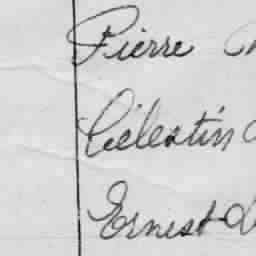 Pierre
Célestin
Ernest